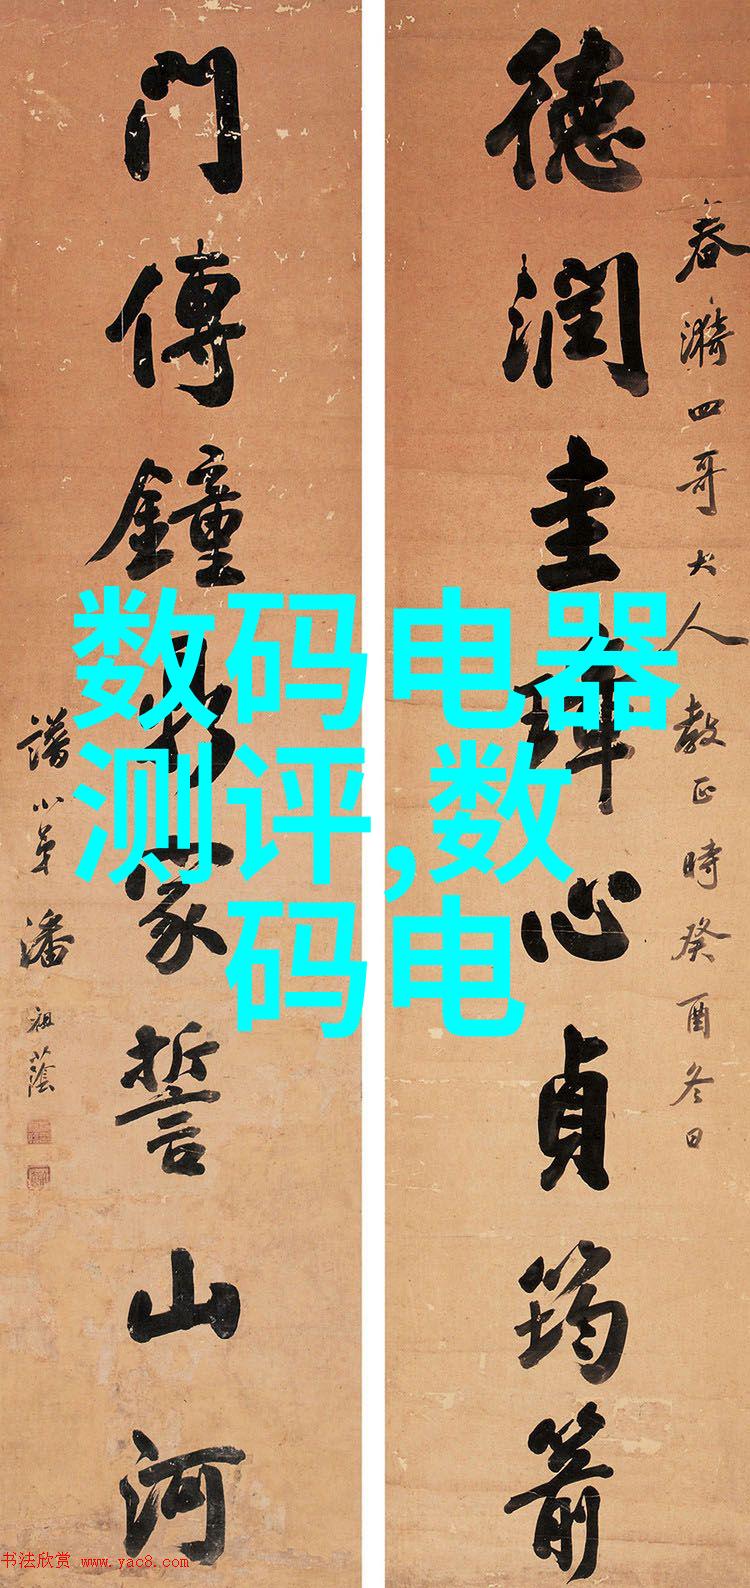 春漪四哥大人教正時癸酉冬日
德潤圭璋心貞筠箭
門傳鐘鼎家誓山河
譜小弟潘祖蔭
数码电器
测评,数
码电
书法欣赏 www.yac8.com